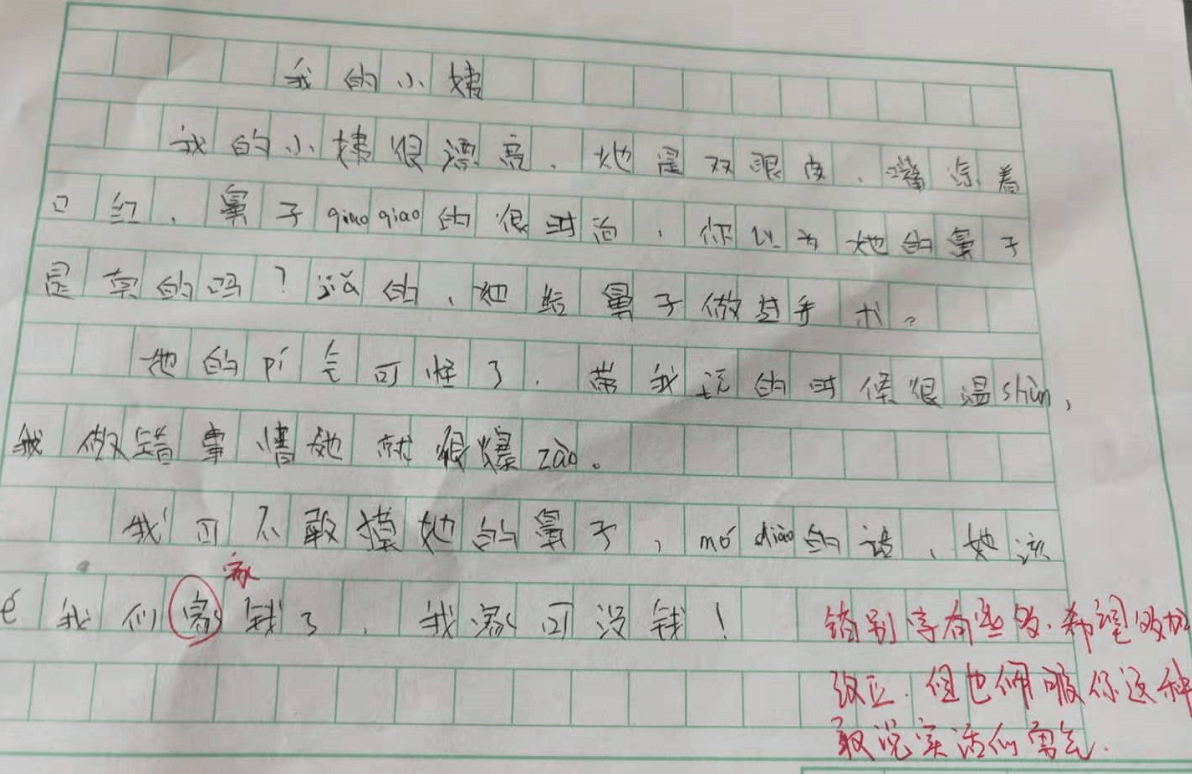 我的小姨
我的小姨很漂亮、她是双眼皮、嘴涂着
口红、鼻子qiao qiao的很时尚,你以为她的鼻子
是真的吗?jiǎ的、她给鼻子做过手术。
她的pí气可怪了、带我玩的时候很温shùn,
我做错事情她就很爆zào。
我可不敢摸她的鼻子,mó diào的话、她该
é我们家钱了、我家可没钱!
家
错别字有些多.希望及时
改正.但也佩服你这种
敢说实话的勇气.